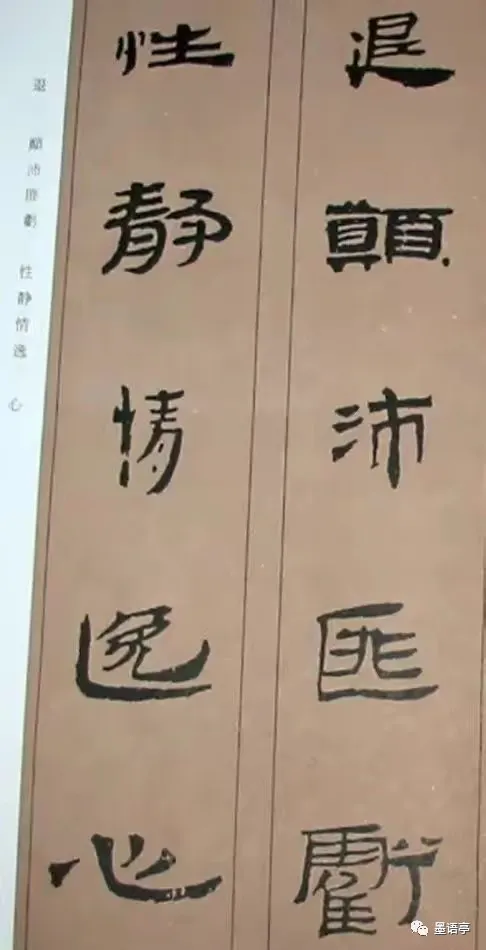 退顛沛匪虧
性静情逸心
退 顛沛匪虧 性静情逸 心
墨语亭